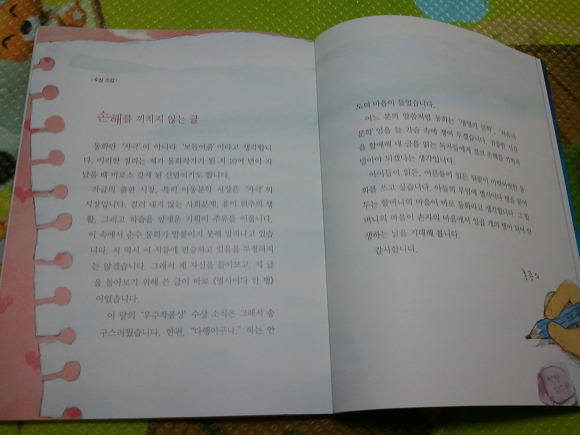 <수상 소감>
손해를 끼치지 않는 글
동화란 '자극'이 아니라 '보듬어줌'이라고 생각합니
다. 이러한 정리는 제가 동화작가가 된 지 10여 년이 지
났을 때 비로소 갖게 된 신념이기도 합니다.
작금의 출판 시장, 특히 아동문학 시장은 '자극'의
시장입니다. 걸러 내지 않는 사회문제, 흥미 위주의 생
활, 그리고 학습을 앞세운 기획이 주류를 이룹니다.
이 속에서 순수 동화가 발붙이지 못해 밀려나고 있습
니다. 저 역시 이 시류에 편승하고 있음을 부정하지
는 않겠습니다. 그래서 제 자신을 돌아보고, 제 글
을 돌아보기 위해 쓴 글이 바로 《별사이다 한 병》
이었습니다.
이 달의 '우수작품상' 수상 소식은 그래서 송
구스러웠습니다. 한편, "다행이구나." 하는 안
도의 마음이 들었습니다.
어느 분의 말씀처럼 동화는 '생명의 문학', '치유의
문학'임을 늘 가슴 속에 새겨 두겠습니다. 귀중한 시간
을 할애해 내 글을 읽는 독자들에게 결코 손해를 끼치지
말아야 되겠다는 생각입니다.
아이들이 읽든, 어른들이 읽든 뒷끝이 어릿어릿한 동
화를 쓰고 싶습니다. 아들의 무덤에 별사이다 병을 묻어
두는 할머니의 마음이 바로 동화라고 생각합니다. 그 할
머니의 마음이 손자의 마음에서 일곱 개의 별이 되어 탄
생하는 날을 기대해 봅니다.
감사합니다.